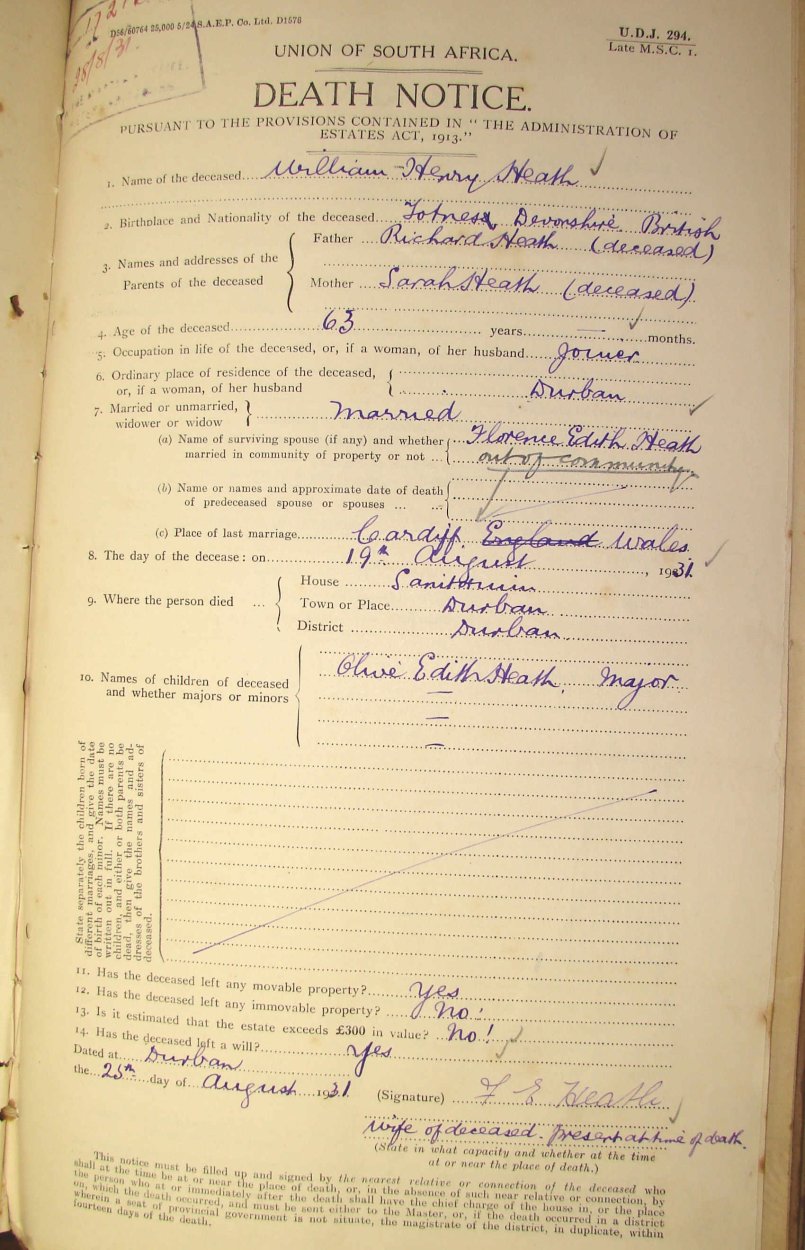 D56/60764 25,000 5/24 S.A.E.P. Co. Ltd. D1578
28/8/31
U.D.J. 294.
Late M.S.C. 1.
UNION OF SOUTH AFRICA.
DEATH NOTICE.
PURSUANT TO THE PROVISIONS CONTAINED IN "THE ADMINISTRATION OF
ESTATES ACT, 1913."
1. Name of the deceased William Henry Heath
2. Birthplace and Nationality of the deceased Totness, Devonshire British
3. Names and addresses of the
Parents of the deceased
Father Richard Heath (deceased)
Mother Sarah Heath (deceased)
4. Age of the deceased 63 years — months.
5. Occupation in life of the deceased, or, if a woman, of her husband Joiner
6. Ordinary place of residence of the deceased,
or, if a woman, of her husband Durban
7. Married or unmarried,
widower or widow Married
(a) Name of surviving spouse (if any) and whether Florence Edith Heath
married in community of property or not ... out of community
(b) Name or names and approximate date of death
of predeceased spouse or spouses ... ...
(c) Place of last marriage Cardiff England Wales
8. The day of the decease: on 19th August, 1931
9. Where the person died ...
House Sanitorium
Town or Place Durban
District Durban
10. Names of children of deceased
and whether majors or minors
Olive Edith Heath, Major
—
—
—
State separately the children born of
different marriages, and give the date
of birth of each minor. Names must be
written out in full. If there are no
children, and either or both parents be
dead, then give the names and ad-
dresses of the brothers and sisters of
deceased.
11. Has the deceased left any movable property? Yes
12. Has the deceased left any immovable property? No!
13. Is it estimated that the estate exceeds £300 in value? No!
14. Has the deceased left a will? Yes
Dated at Durban
the 25th day of August 1931
(Signature) F E Heath
Wife of deceased. present at time of death.
(State in what capacity and whether at the time
at or near the place of death.)
This notice must be filled up and signed by the nearest relative or connection of the deceased who
shall at the time be at or near the place of death, or, in the absence of such near relative or connection, by
the person who at or immediately after the death shall have the chief charge of the house in, or the place
on, which the death occurred, and must be sent either to the Master, or, if the death occurred in a district
wherein a seat of provincial government is not situate, the magistrate of the district, in duplicate, within
fourteen days of the death.